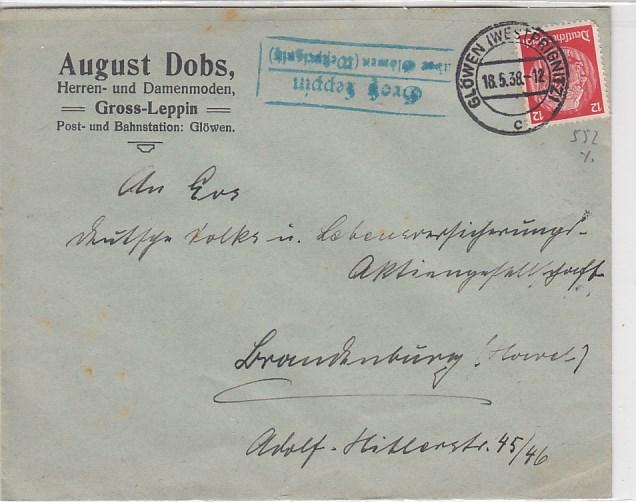 August Dobs,
Herren- und Damenmoden,
Gross-Leppin
Post- und Bahnstation: Glöwen.
Groß Leppin
über Glöwen (Westprignitz)
GLÖWEN (WESTPRIGNITZ)
18.5.38.-12
c
Deutsches
12 12
552
An
Deutsche Volks u. Lebensversicherungs-
Aktiengesellschaft
Brandenburg (Havel)
Adolf-Hitlerstr. 45/46